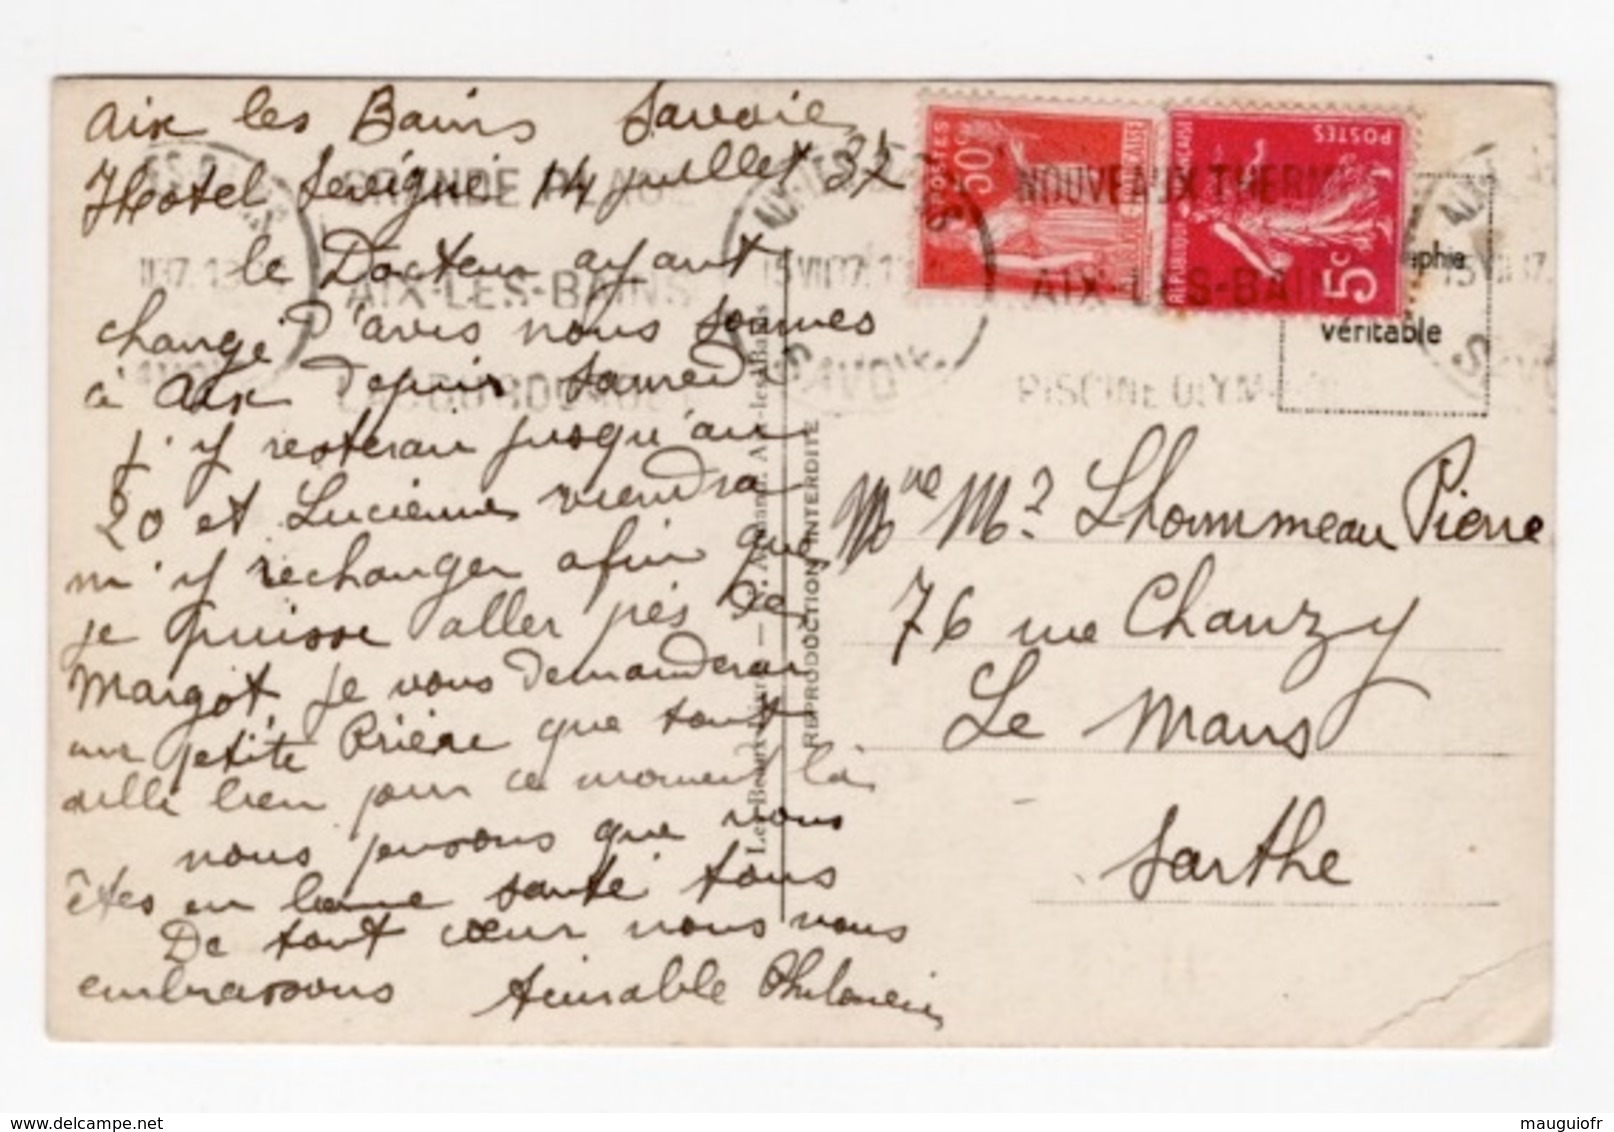 Aix les Bains Savoie
Hotel Sévigné 14 juillet 37
le Docteur ayant
changé d'avis nous sommes
à Aix depuis Samedi
j'y resterai jusqu'au
20 et Lucienne viendra
m'y rechanger afin que
je puisse aller près de
Margot je vous demanderai
une petite Prière que tout
aille bien pour ce moment là
nous pensons que vous
êtes en bonne santé tous
De tout cœur nous vous
embrassons Aimable
GRANDE PLAGE
AIX-LES-BAINS
LAC DU BOURGET
NOUVEAUX THERMES
AIX-LES-BAINS
PISCINE OLYM
POSTES
50c
POSTES
5c
véritable
Les Beaux
REPRODUCTION INTERDITE
Mme Mr Lhommeau Pierre
76 rue Chanzy
Le Mans
Sarthe
mauguiofr